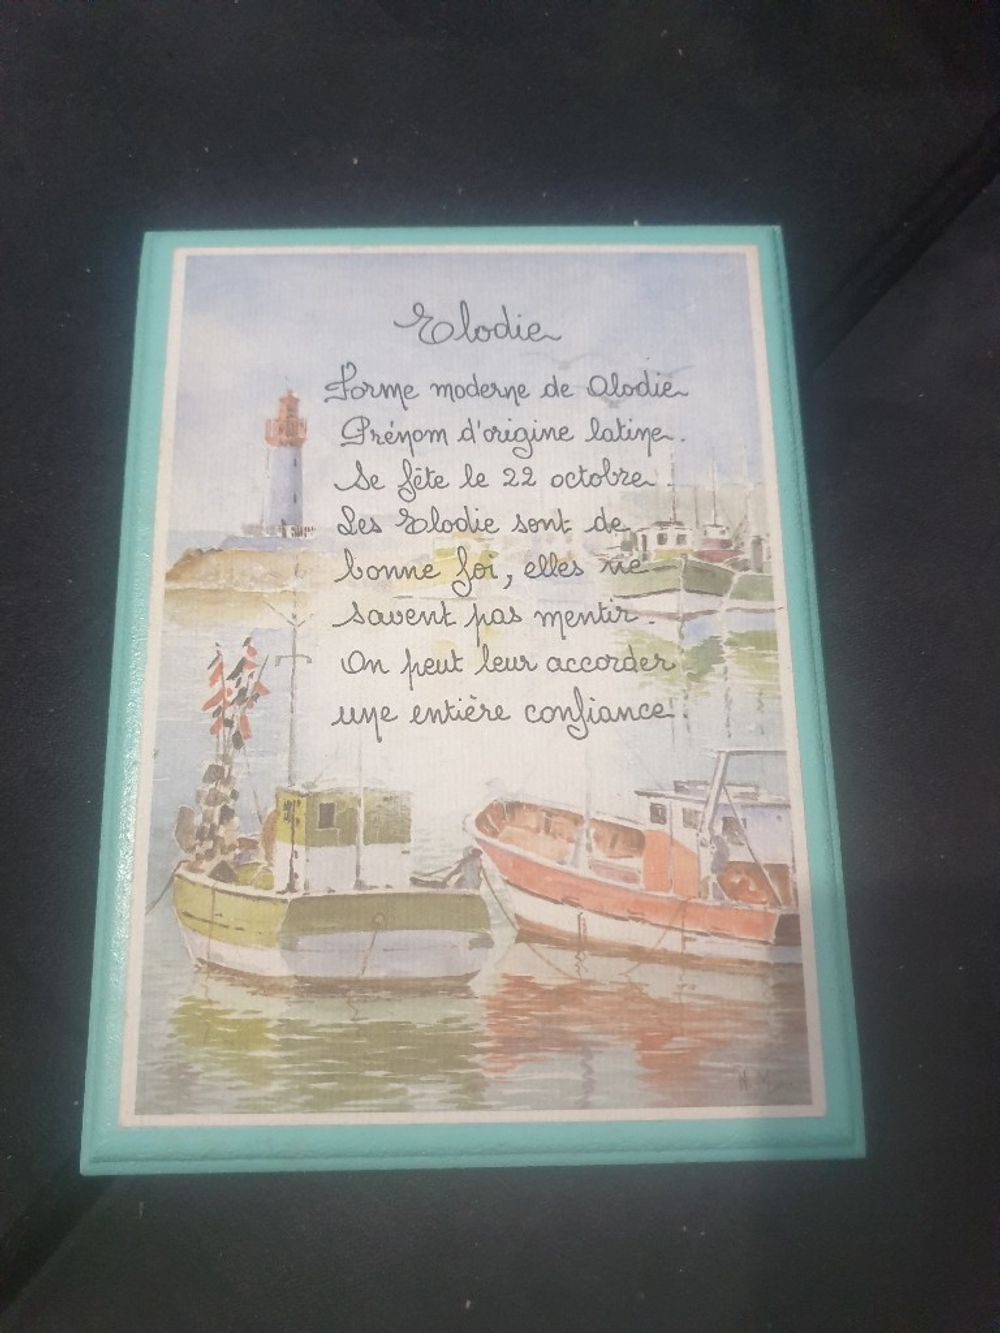 Elodie
Forme moderne de Alodie
Prénom d'origine latine.
Se fête le 22 octobre.
Les Elodie sont de
bonne foi, elles ne
savent pas mentir.
On peut leur accorder
une entière confiance.